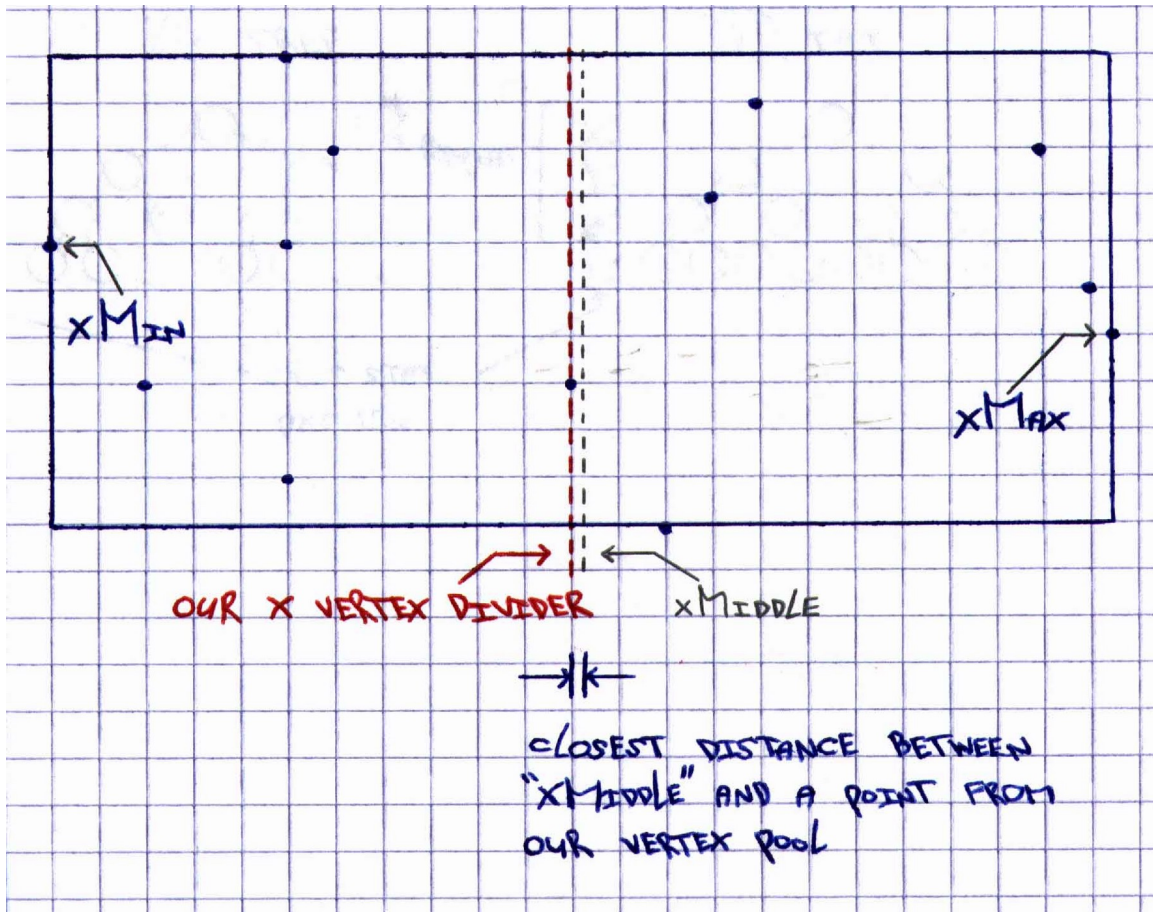 xMIN
xMAX
OUR X VERTEX DIVIDER
xMIDDLE
CLOSEST DISTANCE BETWEEN
"XMIDDLE" AND A POINT FROM
OUR VERTEX POOL